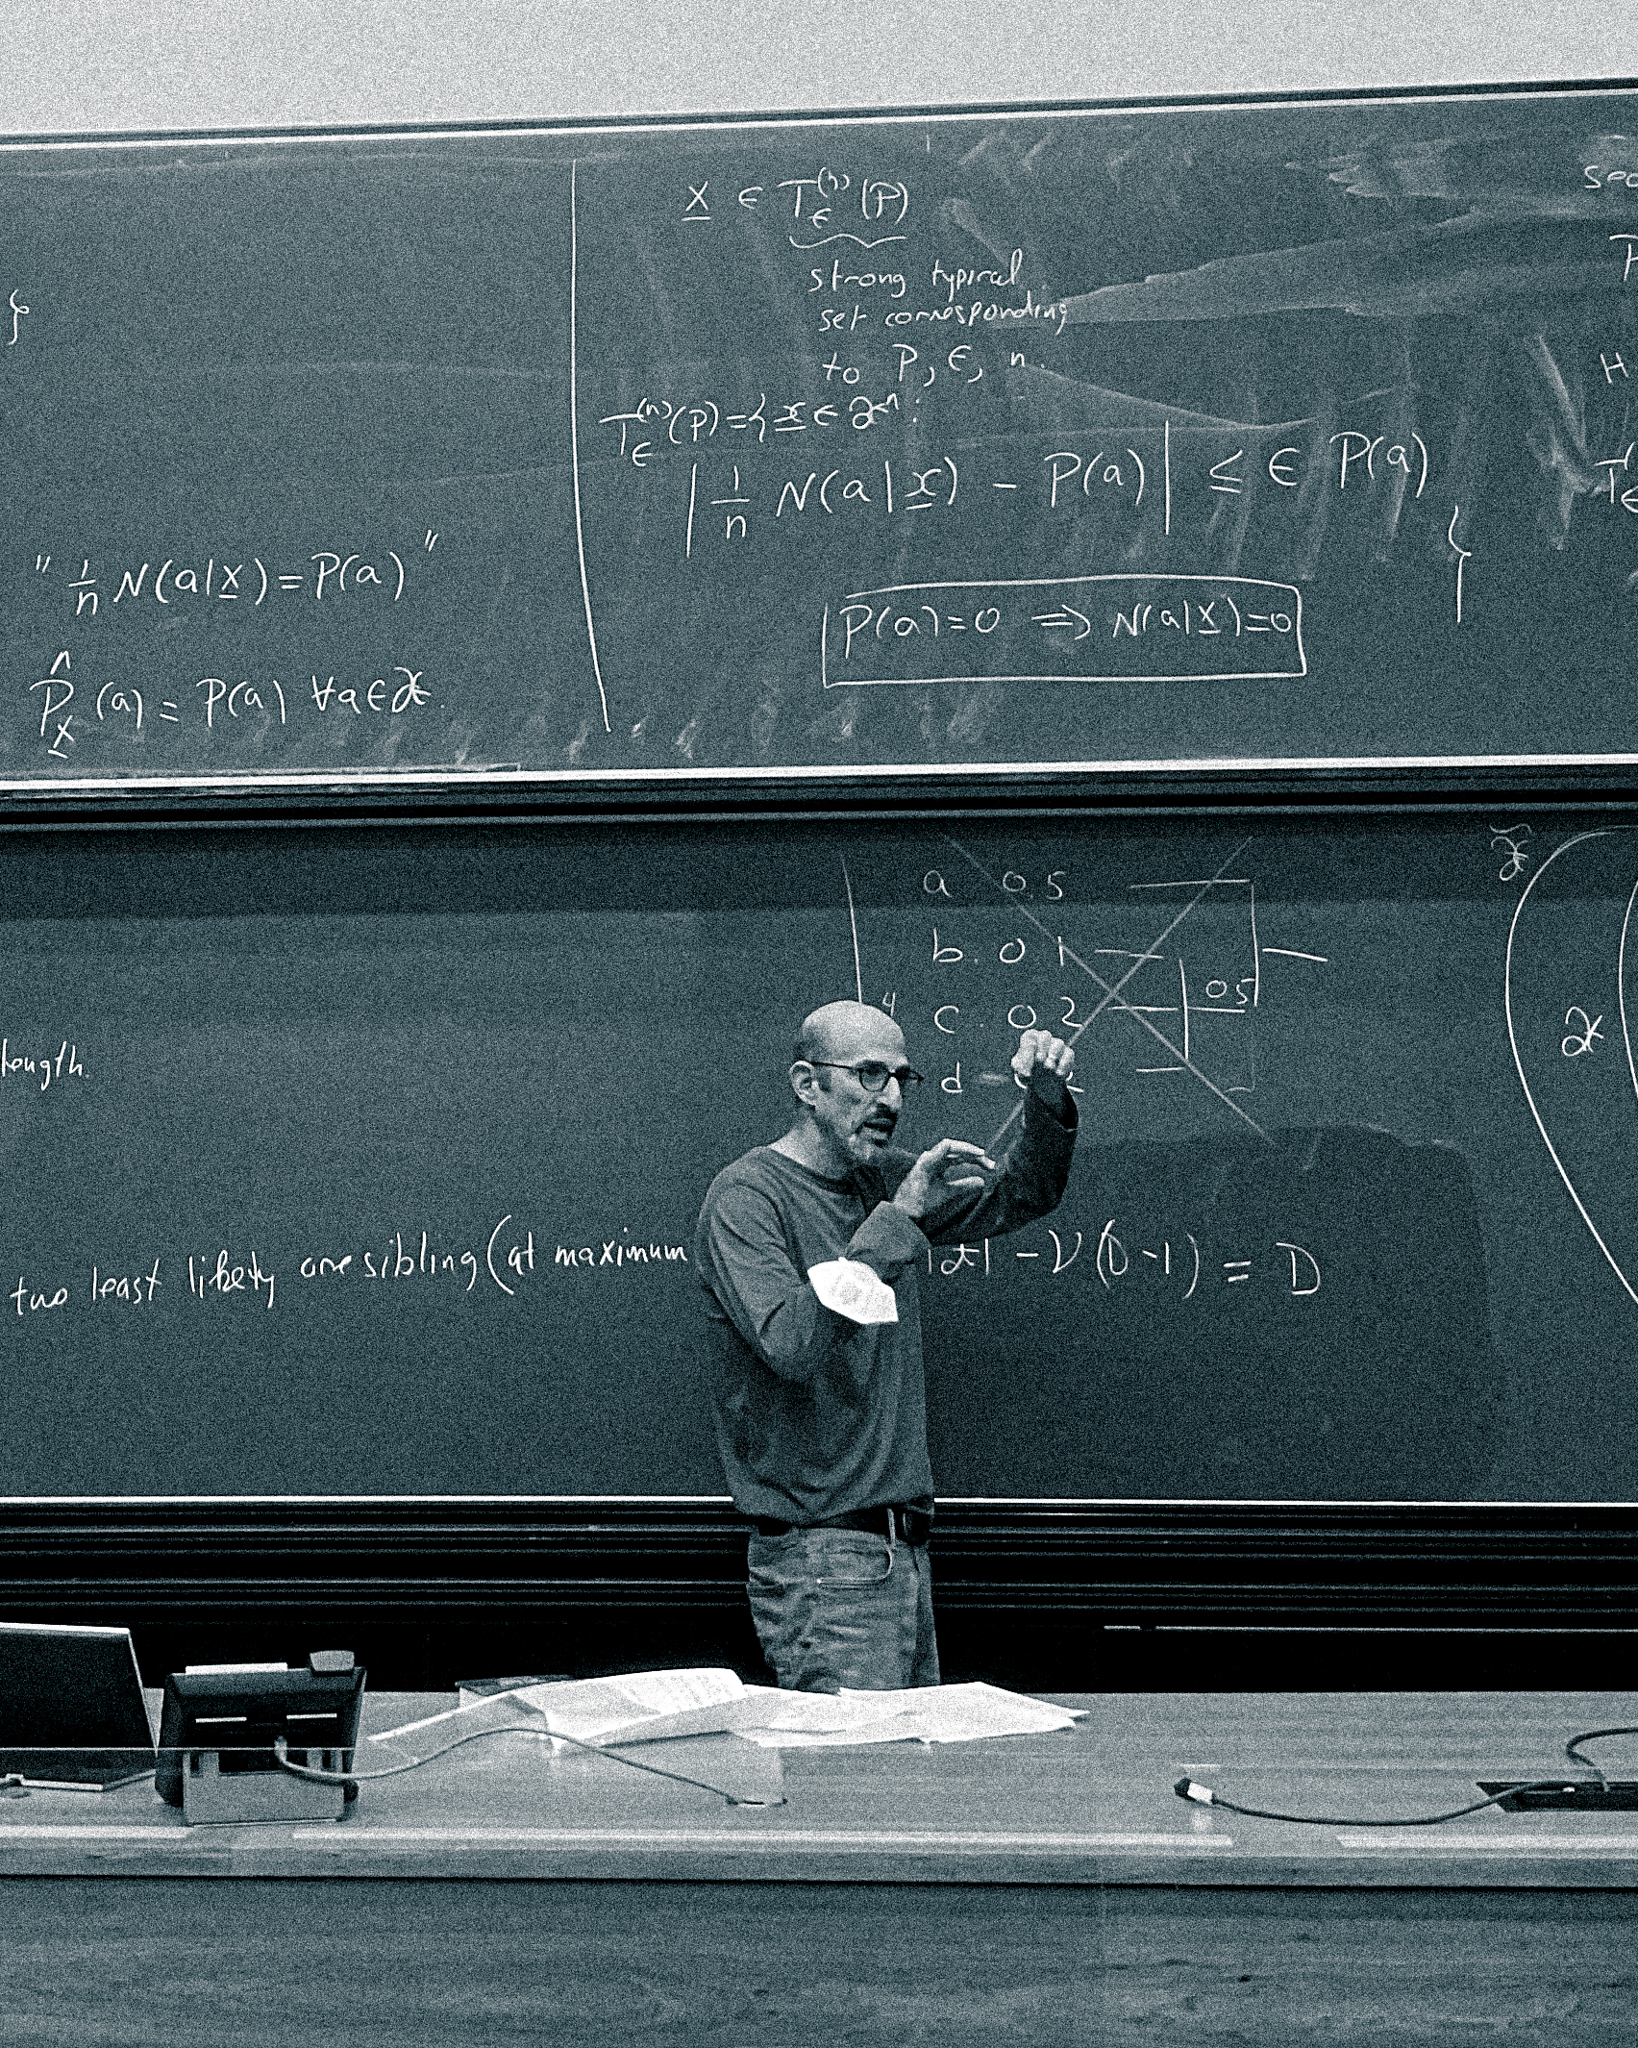 }
" 1/n N(a|x) = P(a) "
P̂_x (a) = P(a) ∀a∈𝒳.
x ∈ T_ϵ^(n) (P)
strong typical
set corresponding
to P, ϵ, n.
T_ϵ^(n) (P) = { x ∈ 𝒳^n :
| 1/n N(a|x) − P(a) | ≤ ϵ P(a)
}
P(a)=0 ⇒ N(a|x)=0
H
length.
two least likely are sibling (at maximum
a 0.5
b. 0.1
0.5
4
c. 0.2
d
|𝒳| − ν(D−1) = D
𝒳̃
𝒳